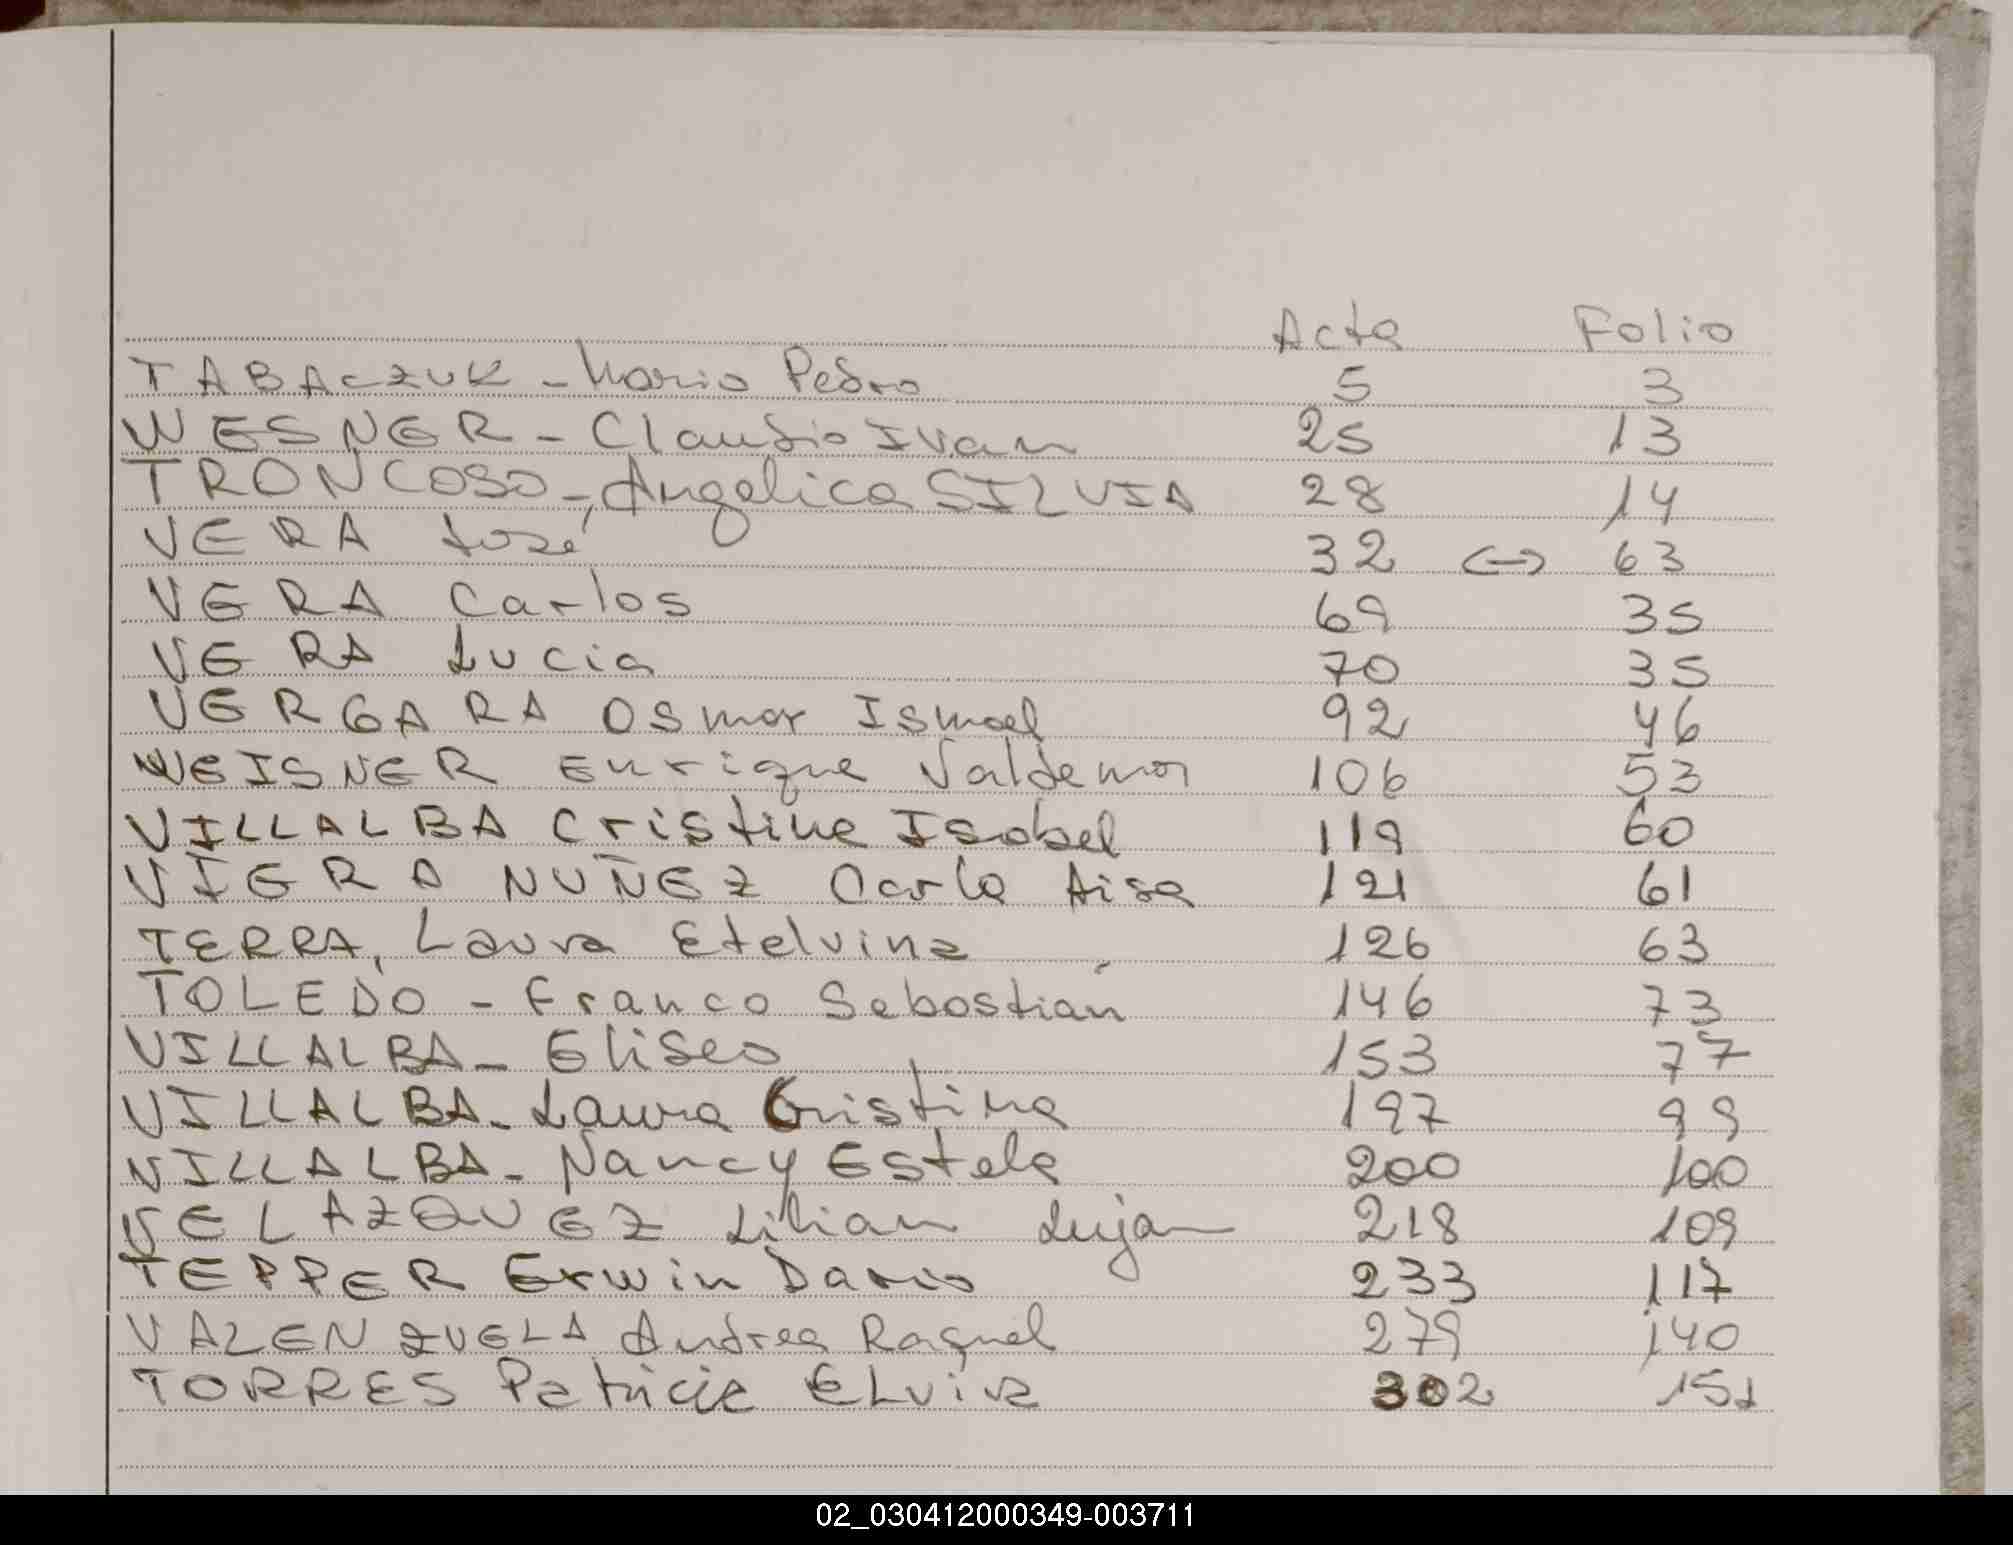 Acta Folio
TABACZUK - Mario Pedro 5 3
WESNER - Claudio Ivan 25 13
TRONCOSO -, Angelica SILVIA 28 14
VERA José 32 <-> 63
VERA Carlos 69 35
VERA Lucia 70 35
VERGARA Osmar Ismael 92 46
WEISNER Enrique Valdemar 106 53
VILLALBA Cristina Isabel 119 60
VIERA NUÑEZ Carla Aisa 121 61
TERRA, Laura Etelvina 126 63
TOLEDO - Franco Sebastián 146 73
VILLALBA - Eliseo 153 77
VILLALBA - Laura Cristina 197 99
VILLALBA - Nancy Estela 200 100
VELAZQUEZ Lilian Lujan 218 109
TEPPER Erwin Dario 233 117
VALENZUELA Andrea Raquel 279 140
TORRES Patricia Elvira 302 151
02_030412000349-003711